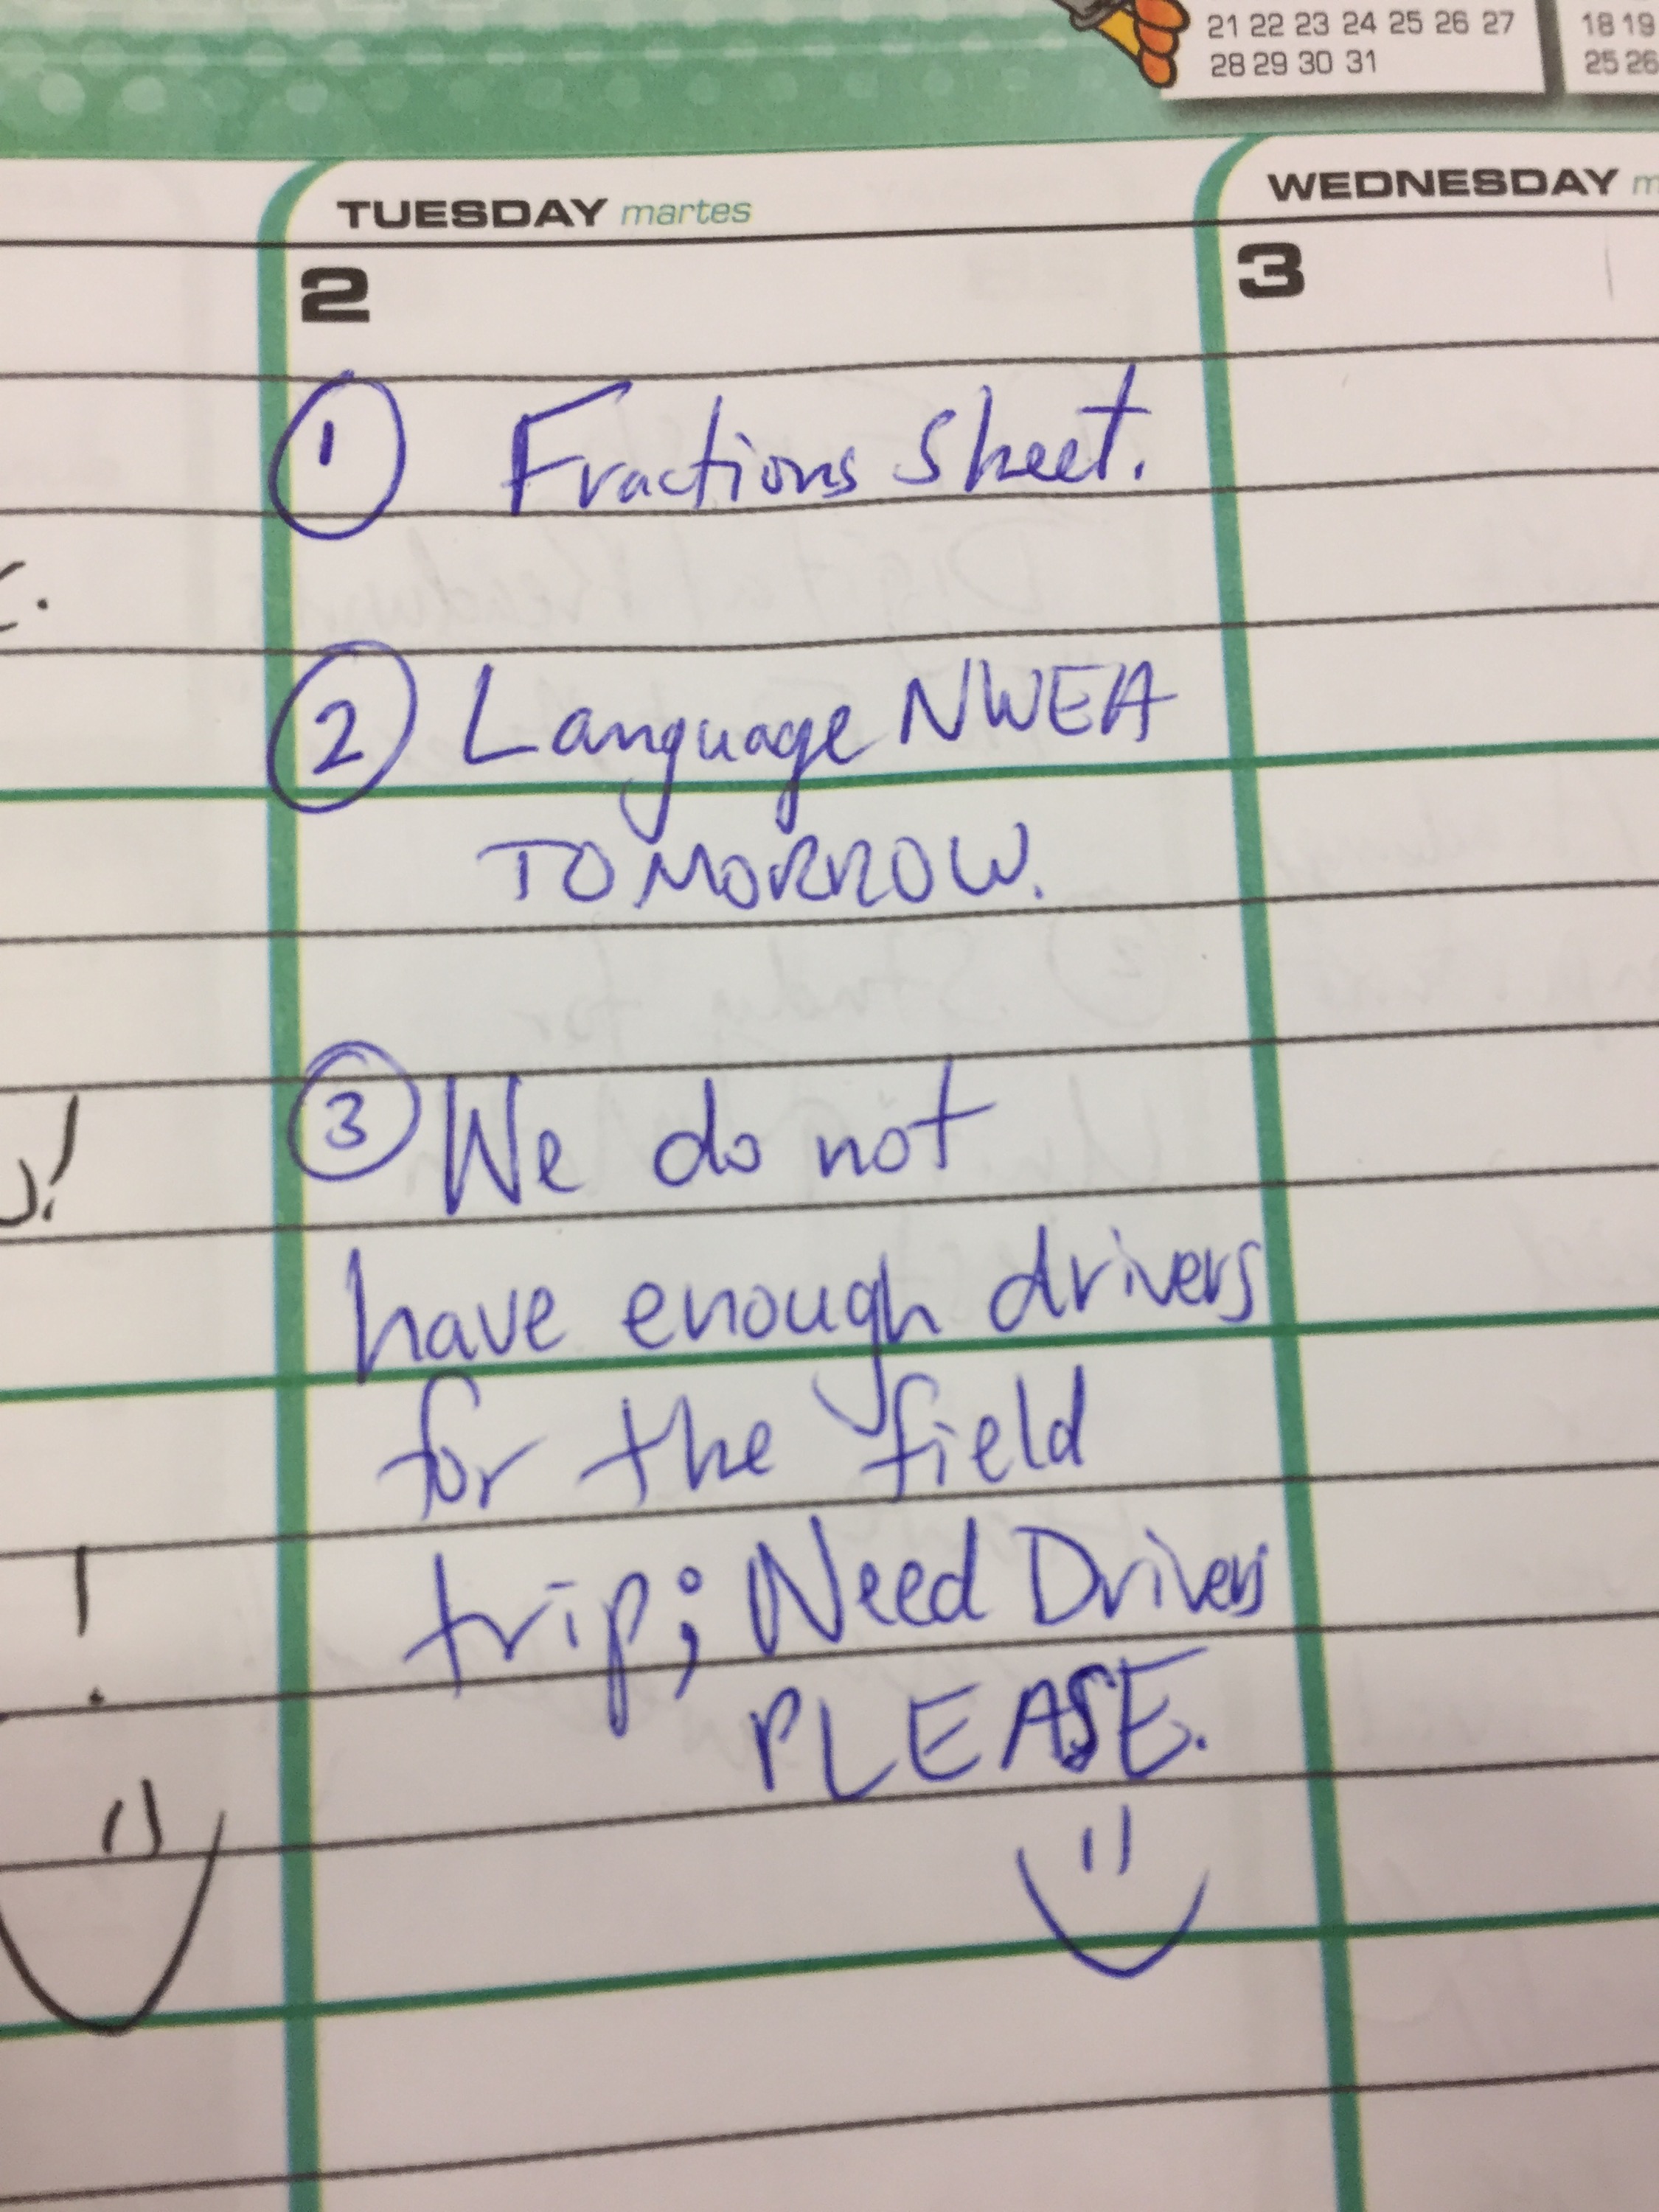 21 22 23 24 25 26 27
28 29 30 31
18 19
25 26
TUESDAY martes
WEDNESDAY m
2
3
1 Fractions Sheet.
2 Language NWEA
TOMORROW.
3 We do not
have enough drivers
for the field
trip; Need Drivers
PLEASE.